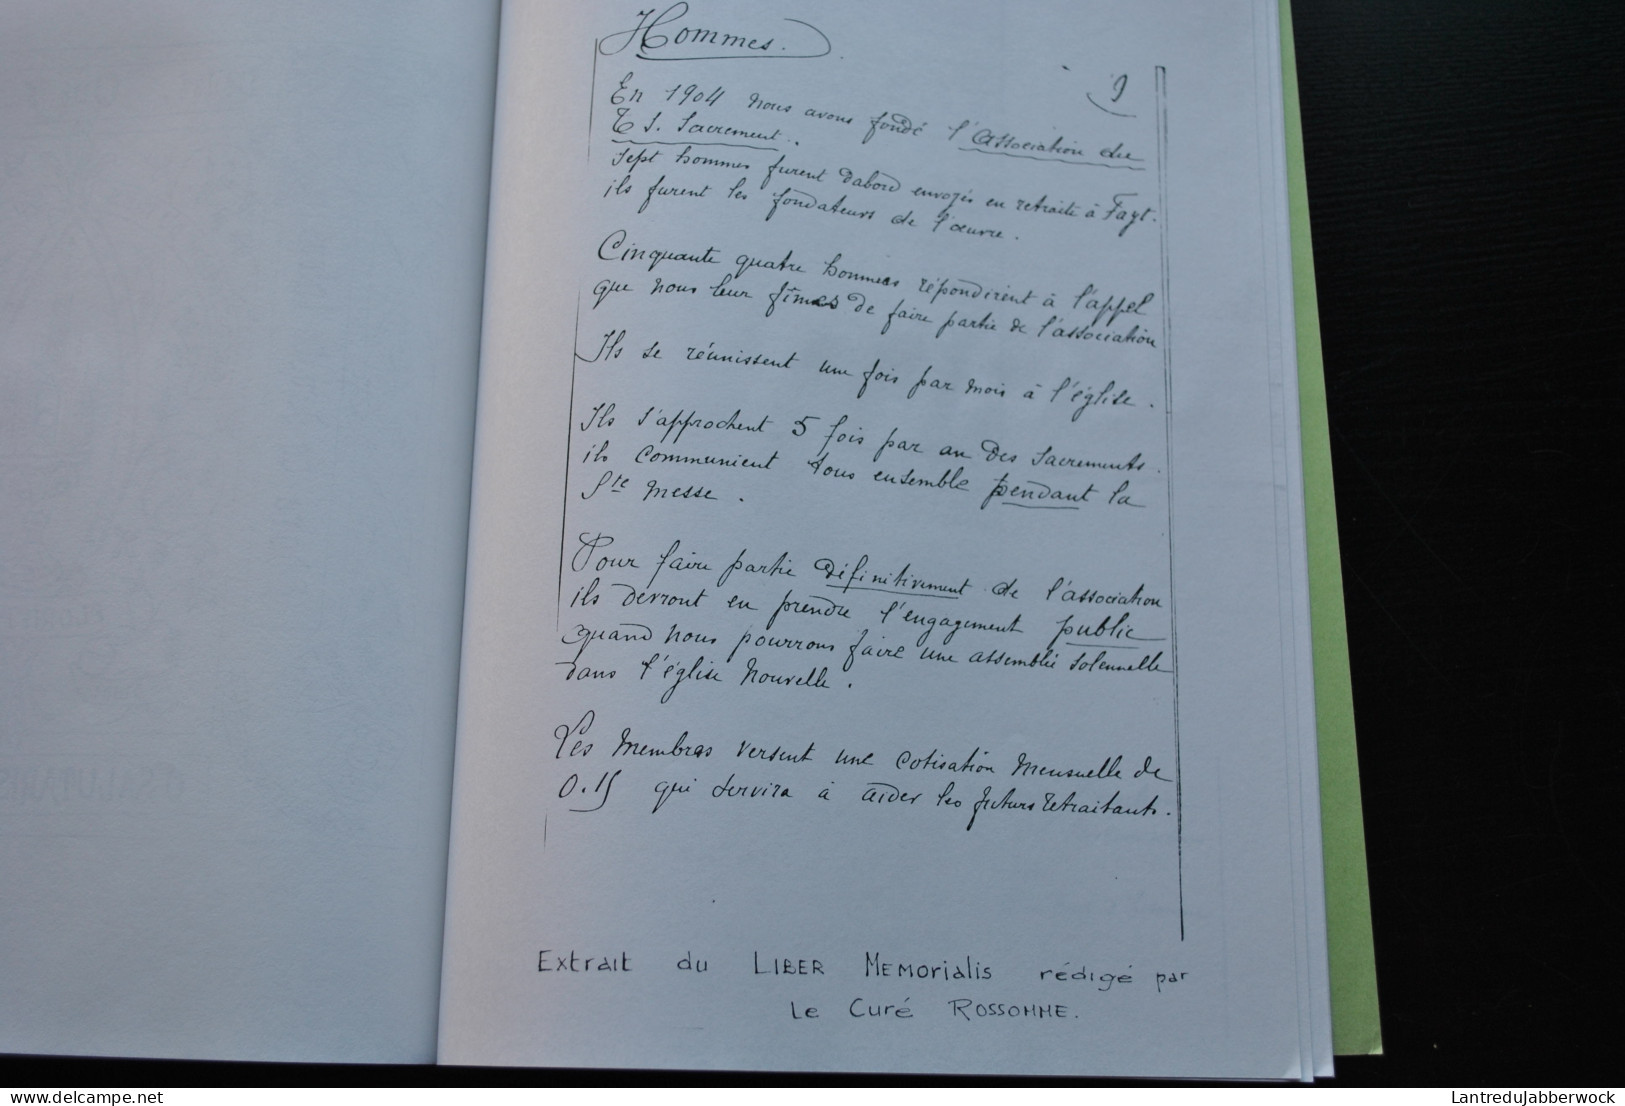 Hommes.
9
En 1904 nous avons fondé l'association du
T S. Sacrement.
Sept hommes furent d'abord envoyés en retraite à Fayt.
ils furent les fondateurs de l'œuvre.
Cinquante quatre hommes répondirent à l'appel
que nous leur fîmes de faire partie de l'association
Ils se réunissent une fois par mois à l'église.
Ils s'approchent 5 fois par an des Sacrements.
ils communient tous ensemble pendant la
Ste Messe.
Pour faire partie définitivement de l'association
ils devront en prendre l'engagement public
quand nous pourrons faire une assemblée solennelle
dans l'église nouvelle.
Les membres versent une cotisation mensuelle de
0.15 qui servira à aider les futurs retraitants.
Extrait du LIBER MEMORIALIS rédigé par
Le Curé ROSSOMME.
delcampe.net
LantreduJabberwock